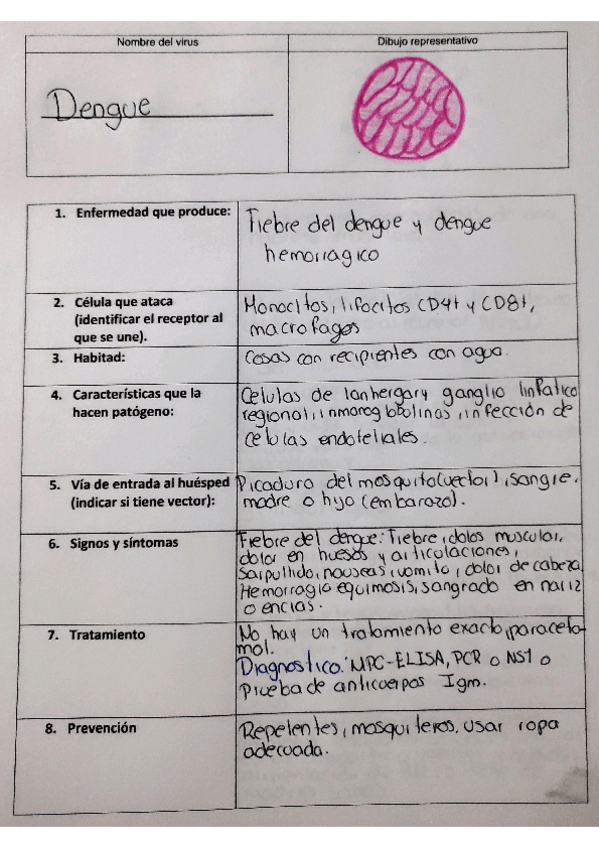 Nombre del virus
Dibujo representativo
Dengue
1. Enfermedad que produce:
Fiebre del dengue y dengue
hemorragico
2. Célula que ataca
(identificar el receptor al
que se une).
Monocitos, lifocitos CD4+ y CD8+,
macrofagos
3. Habitad:
Casas con recipientes con agua.
4. Características que la
hacen patógeno:
Celulas de lanhergary ganglio linfatico
regional, inmonoglobolinas, infección de
celulas endoteliales.
5. Vía de entrada al huésped
(indicar si tiene vector):
Picadura del mosquito(vector), sangre,
madre o hijo (embarazo).
6. Signos y síntomas
Fiebre del dengue: Fiebre, dolos muscular,
dolor en huesos y articulaciones,
sarpullido, nauseas, vomito, dolor de cabeza
Hemorragia equimosis, sangrado en nariz
o encias.
7. Tratamiento
No hay un tratamiento exacto, paraceta-
mol.
Diagnostico: MPC-ELISA, PCR o NS1 o
Prueba de anticuerpos Igm.
8. Prevención
Repelentes, mosquiteros, usar ropa
adecuada.